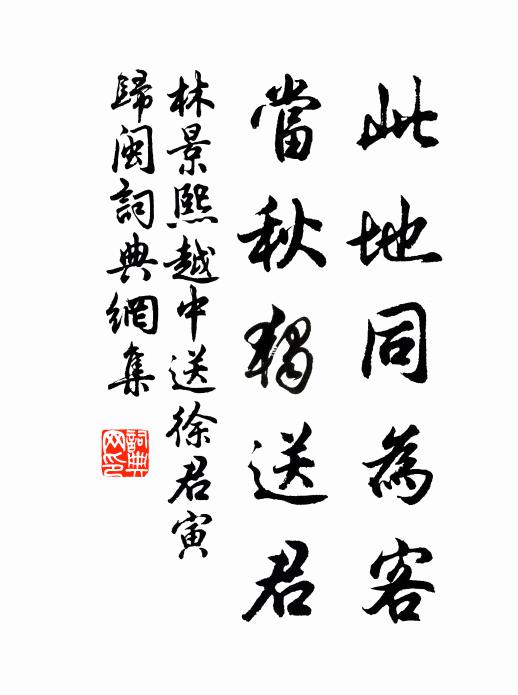 此地同為客
當秋獨送君
林景熙越中送徐君寅
歸閩詞典網集
詞典網印